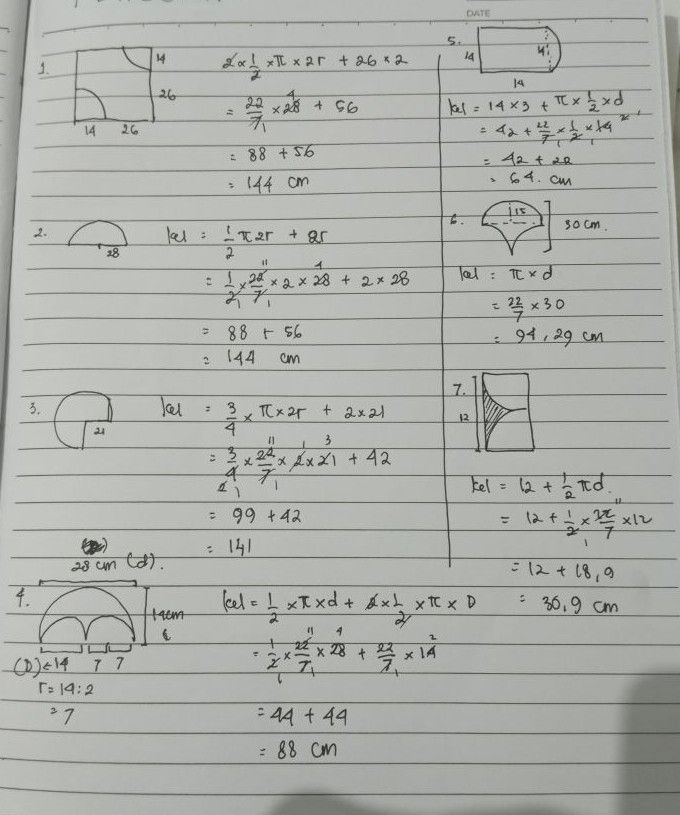 DATE
1.
14
26
14 26
2 × 1/2 × π × 2r + 26 × 2
= 22/7 × 28 + 56
4
1
= 88 + 56
= 144 cm
2.
28
kel = 1/2 π 2r + 2r
= 1/2 × 22/7 × 2 × 28 + 2 × 28
11 4
1 1
= 88 + 56
= 144 cm
3.
21
kel = 3/4 × π × 2r + 2 × 21
= 3/4 × 22/7 × 2 × 21 + 42
11 1 3
2 1 1
= 99 + 42
= 141
4.
28 cm (d).
14cm
(D) ← 14 7 7
r = 14 : 2
= 7
kel = 1/2 × π × d + 2 × 1/2 × π × D
= 1/2 × 22/7 × 28 + 22/7 × 14
11 4 2
1 1 1
= 44 + 44
= 88 cm
5.
14
14
14
kel = 14 × 3 + π × 1/2 × d
= 42 + 22/7 × 1/2 × 14
2
1 1
= 42 + 22
= 64. cm
6.
15
30 cm.
kel = π × d
= 22/7 × 30
= 94,29 cm
7.
12
kel = 12 + 1/2 π d.
= 12 + 1/2 × 22/7 × 12
11
1
= 12 + 18,9
= 30,9 cm